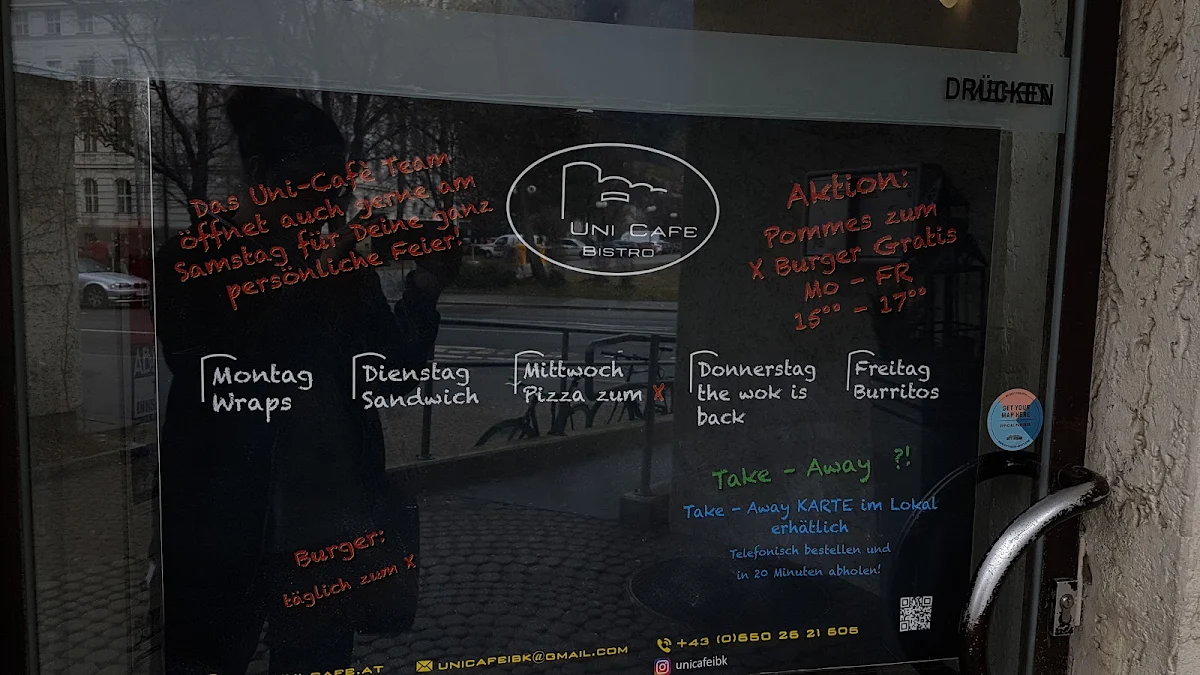 Das Uni-Cafè Team
öffnet auch gerne am
Samstag für Deine ganz
persönliche Feier!
UNI CAFE
BISTRO
Aktion:
Pommes zum
X Burger Gratis
Mo - FR
15⁰⁰ - 17⁰⁰
Montag
Wraps
Dienstag
Sandwich
Mittwoch
Pizza zum X
Donnerstag
the wok is
back
Freitag
Burritos
GET YOUR
MAP HERE
Take - Away ?!
Take - Away KARTE im Lokal
erhätlich
Telefonisch bestellen und
in 20 Minuten abholen!
Burger:
täglich zum X
UNICAFEIBK@GMAIL.COM
+43 (0)650 26 21 605
unicafeibk